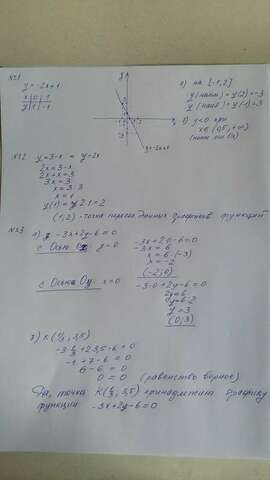 №1
y = -2x+1
x | 0 | 1
y | 1 | -1
y = -2x+1
а) на [-1,2]
y(наим) = y(2) = -3
y(наиб) = y(-1) = 3
б) y<0 при
x∈(0,5; +∞)
№2 y=3-x = y=2x
2x=3-x
2x+x=3
3x=3
x=3:3
x=1
y(1)=2·1=2
(1;2) - точка пересеч данных графиков функций
№3 а) -3x+2y-6=0
с Осью Ox y=0
-3x+2·0-6=0
-3x=6
x=6:(-3)
x=-2
(-2;0)
с Осью Oy: x=0
-3·0+2y-6=0
2y=6
y=6:2
y=3
(0;3)
б) K(1/3; 3,5)
-3·1/3+2·3,5-6=0
-1+7-6=0
6-6=0
0=0 (равенство верное)
Да, точка K(1/3; 3,5) принадлежит графику
функции -3x+2y-6=0